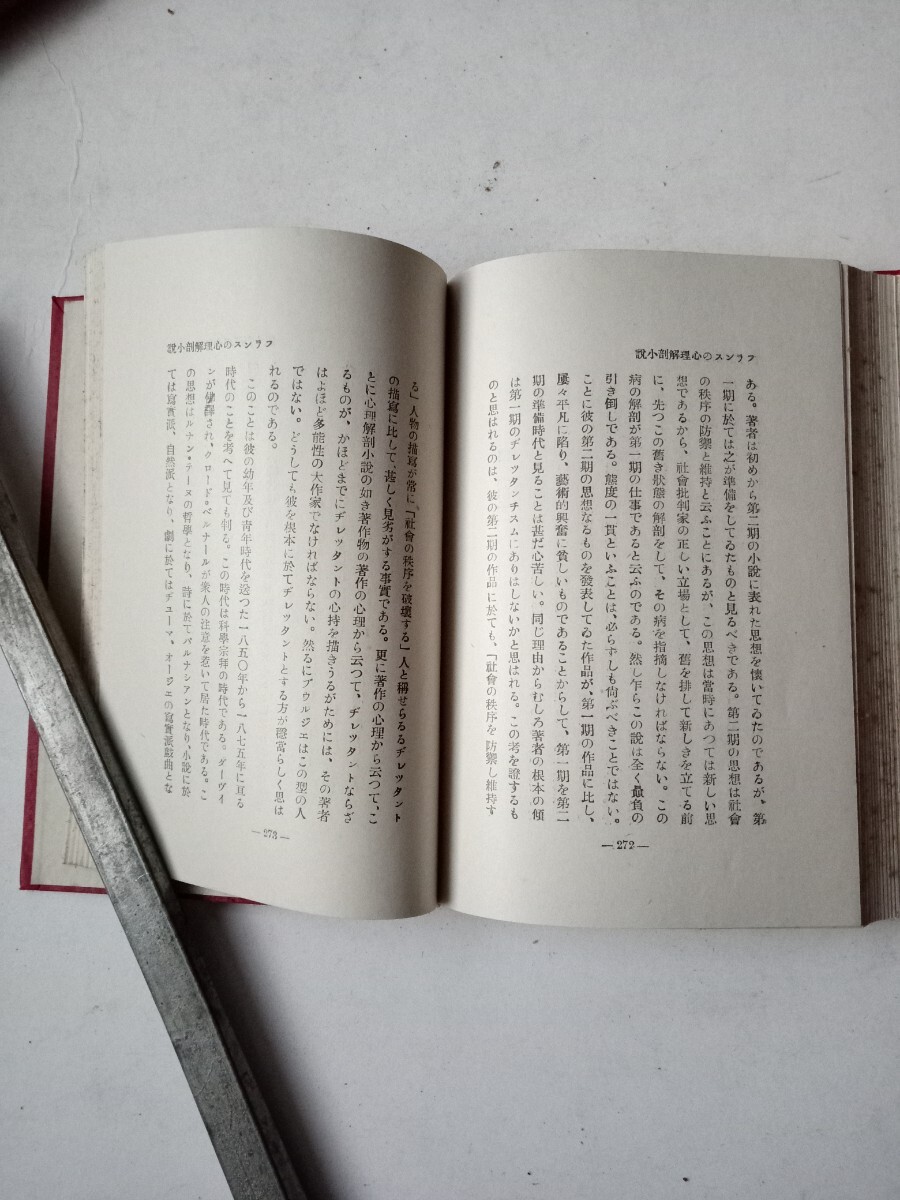 フランスの心理解剖小說
ある。著者は初めから第二期の小說に表れた思想を懷いてゐたのであるが、第
一期に於ては之が準備をしてゐたものと見るべきである。第二期の思想は社會
の秩序の防禦と維持と云ふことにあるが、この思想は當時にあつては新しい思
想であるから、社會批判家の正しい立場として、舊を排して新しきを立てる前
に、先づこの舊き狀態の解剖をして、その病を指摘しなければならない。この
病の解剖が第一期の仕事であると云ふのである。然し乍らこの說は全く贔負の
引き倒しである。態度の一貫といふことは必らずしも尙ぶべきことではない。
ことに彼の第二期の思想なるものを發表してゐた作品が、第一期の作品に比し、
屢々平凡に陷り、藝術的興奮に貧しいものであることからして、第一期を第二
期の準備時代と見ることは甚だ心苦しい。同じ理由からむしろ著者の根本の傾
は第一期のヂレッタンチスムにありはしないかと思はれる。この考を證するも
のと思はれるのは、彼の第二期の作品に於ても、「社會の秩序を防禦し維持す
— 272 —
フランスの心理解剖小說
る」人物の描寫が常に「社會の秩序を破壞する」人と稱せらるるヂレッタント
の描寫に比して、甚しく見劣がする事實である。更に著作の心理から云つて、こ
とに心理解剖小說の如き著作物の著作の心理から云つて、ヂレッタントならざ
るものが、かほどまでにヂレッタントの心持を描きうるがためには、その著者
はよほど多能性の大作家でなければならない。然るにブウルジエはこの型の人
ではない。どうしても彼を根本に於てヂレッタントとする方が穩當らしく思は
れるのである。
このことは彼の幼年及び靑年時代を送つた一八五〇年から一八七五年に亙る
時代のことを考へて見ても判る。この時代は科學宗拜の時代である。ダーヴイ
ンが佛譯され、クロード・ベルナールが衆人の注意を惹いて居た時代である。こ
の思想はルナン・テーヌの哲學となり、詩に於てパルナシアンとなり、小說に於
ては寫實派、自然派となり、劇に於てはヂューマ、オージエの寫實派戲曲とな
— 273 —